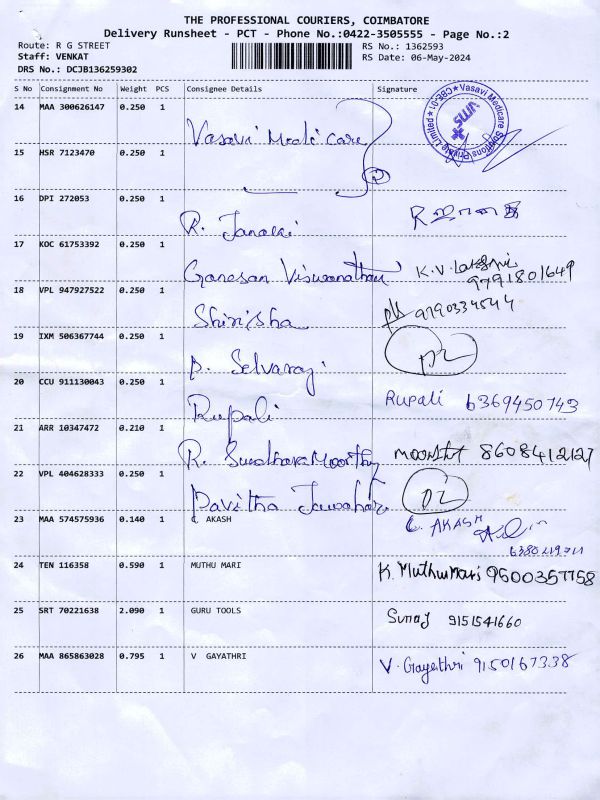 THE PROFESSIONAL COURIERS, COIMBATORE
Delivery Runsheet - PCT - Phone No.:0422-3505555 - Page No.:2
Route: R G STREET
Staff: VENKAT
DRS No.: DCJB136259302
RS No.: 1362593
RS Date: 06-May-2024
S No Consignment No Weight PCS Consignee Details Signature
14 MAA 300626147 0.250 1 Vasavi Medicare
Vasavi Medicare Solutions Private Limited ★ CBE-01 ★
VMS
15 HSR 7123470 0.250 1
16 DPI 272053 0.250 1 R. Janaki
17 KOC 61753392 0.250 1 Ganesan Viswanathan K.V. Lakshmi
9791801649
18 VPL 947927522 0.250 1 Shirisha 9790334544
19 IXM 506367744 0.250 1 P. Selvaraj
20 CCU 911130043 0.250 1 Rupali Rupali 6369450743
21 ARR 10347472 0.210 1 R. Sundhara Moorthy 8608412127
22 VPL 404628333 0.250 1 Pavitha Jawahar
23 MAA 574575936 0.140 1 C AKASH C. AKASH
24 TEN 116358 0.590 1 MUTHU MARI K. Muthu Mari 9600357758
25 SRT 70221638 2.090 1 GURU TOOLS Suraj 9151541660
26 MAA 865863028 0.795 1 V GAYATHRI V. Gayathri 9150167338